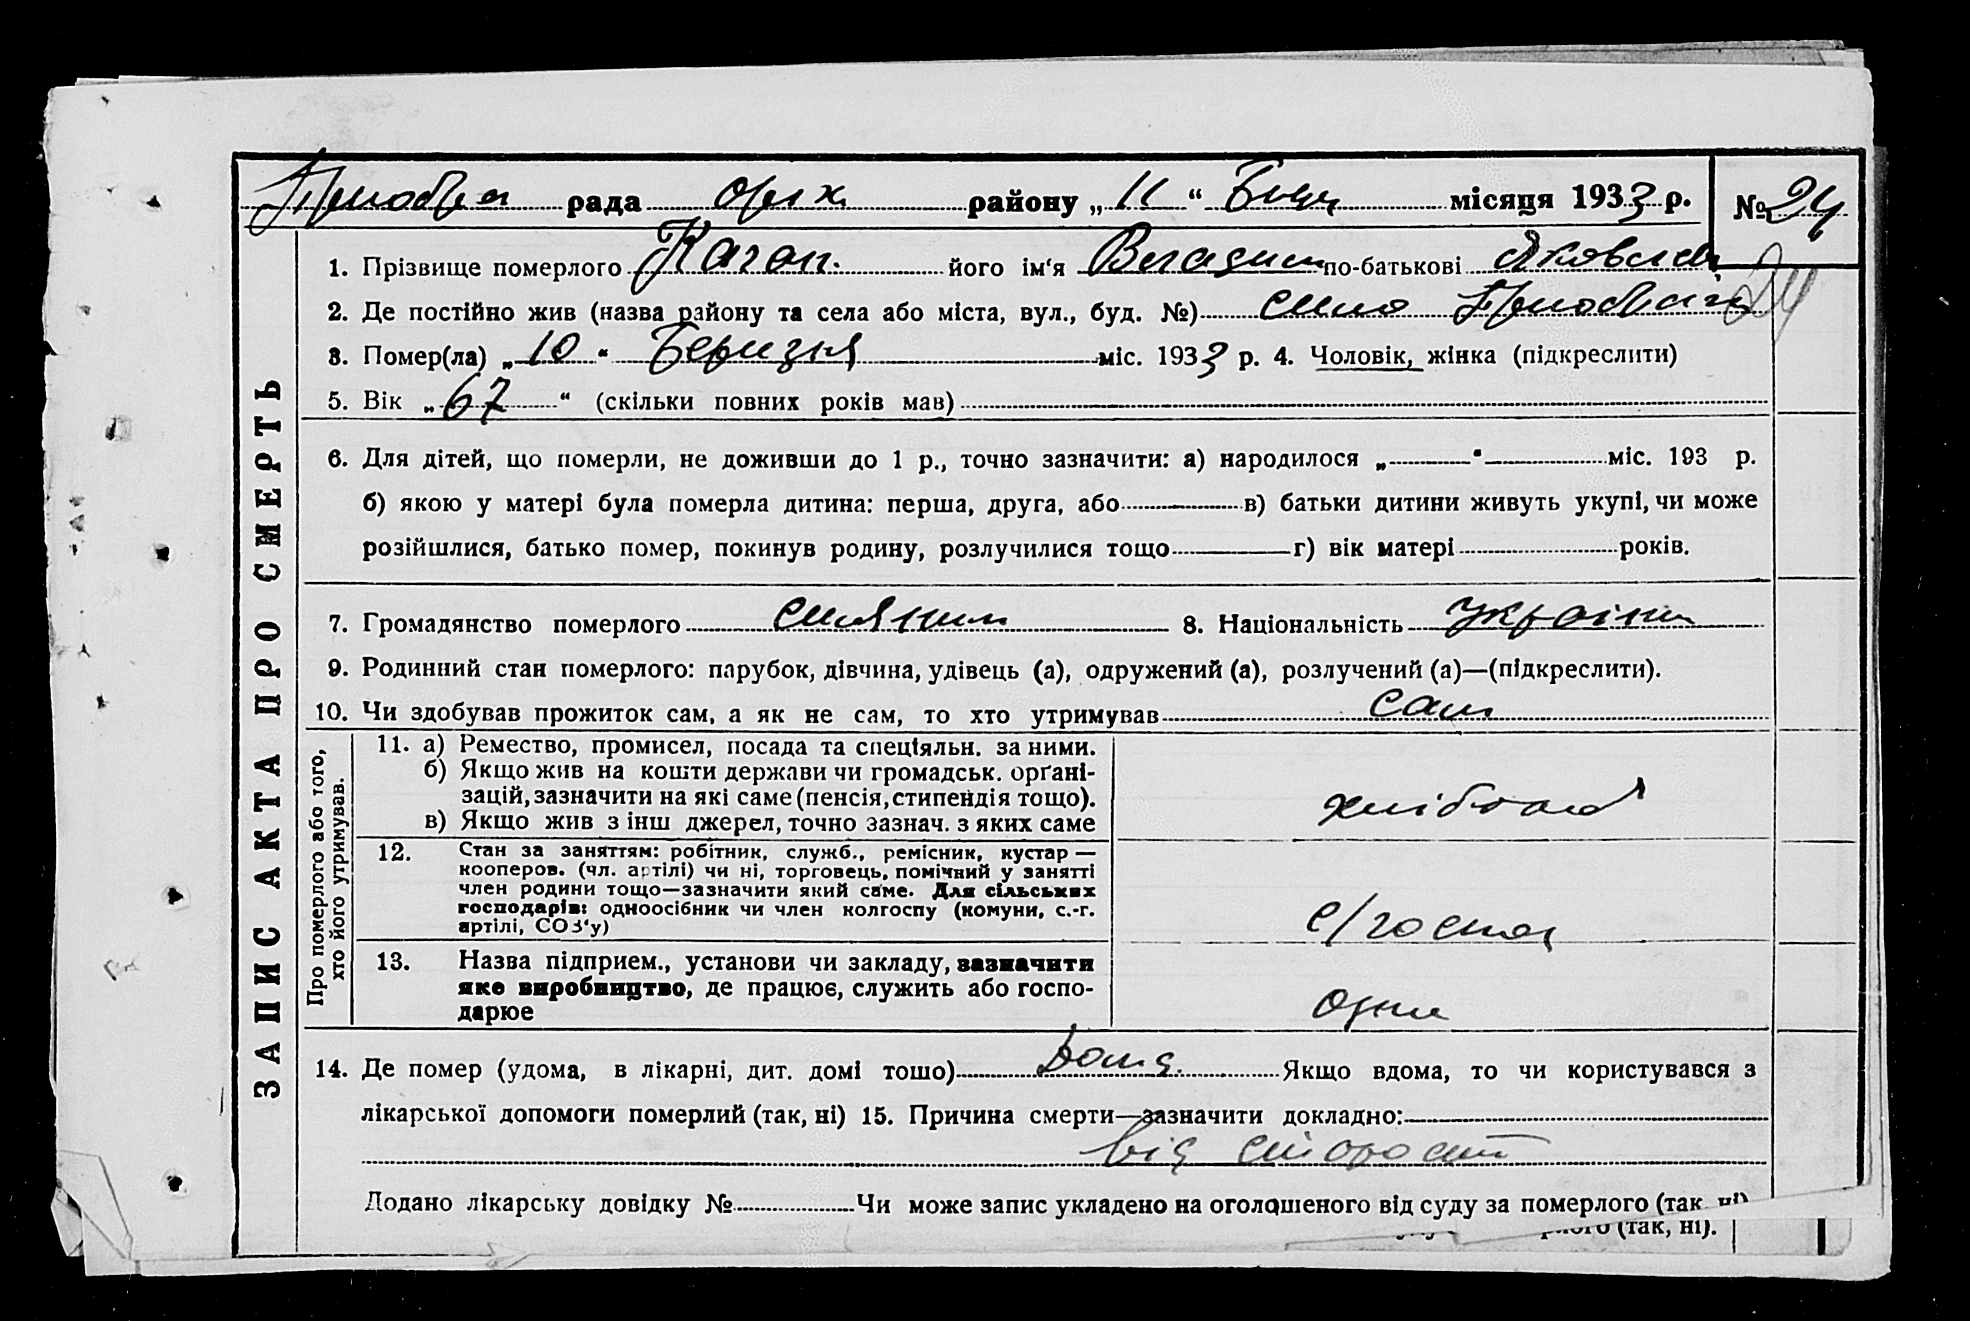 рада оріх району „ 11 “ місяця 1933 р. № 24
1. Прізвище померлого Каган його ім‘я Владим по-батькові Яковлев
24
2. Де постійно жив (назва району та села або міста, вул., буд. №) село
3. Помер(ла) „ 10 “ Березня міс. 1933 р. 4. Чоловік, жінка (підкреслити)
5. Вік „ 67 “ (скільки повних років мав)
6. Для дітей, що померли, не доживши до 1 р., точно зазначити: а) народилося „ “ міс. 193 р.
б) якою у матері була померла дитина: перша, друга, або в) батьки дитини живуть укупі, чи може
розійшлися, батько помер, покинув родину, розлучилися тощо г) вік матері років.
7. Громадянство померлого селянин 8. Національність україн
9. Родинний стан померлого: парубок, дівчина, удівець (а), одружений (а), розлучений (а)—(підкреслити).
10. Чи здобував прожиток сам, а як не сам, то хто утримував сам
Про померлого або того,
хто його утримував.
11. а) Ремество, промисел, посада та спеціяльн. за ними.
б) Якщо жив на кошти держави чи громадськ. орґані-
зацій, зазначити на які саме (пенсія, стипендія тощо).
в) Якщо жив з інш джерел, точно зазнач. з яких саме
хлібороб
12. Стан за заняттям: робітник, служб., ремісник, кустар —
кооперов. (чл. артілі) чи ні, торговець, помічний у занятті
член родини тощо—зазначити який саме. Для сільських
господарів: одноосібник чи член колгоспу (комуни, с.-г.
артілі, СОЗ‘у)
с/господ
13. Назва підприєм., установи чи закладу, зазначити
яке виробництво, де працює, служить або госпо-
дарює
14. Де помер (удома, в лікарні, дит. домі тошо) Дома. Якщо вдома, то чи користувався з
лікарської допомоги померлий (так, ні) 15. Причина смерти—зазначити докладно:
від старости
Додано лікарську довідку № Чи може запис укладено на оголошеного від суду за померлого (так ні)
(так, ні).
ЗАПИС АКТА ПРО СМЕРТЬ